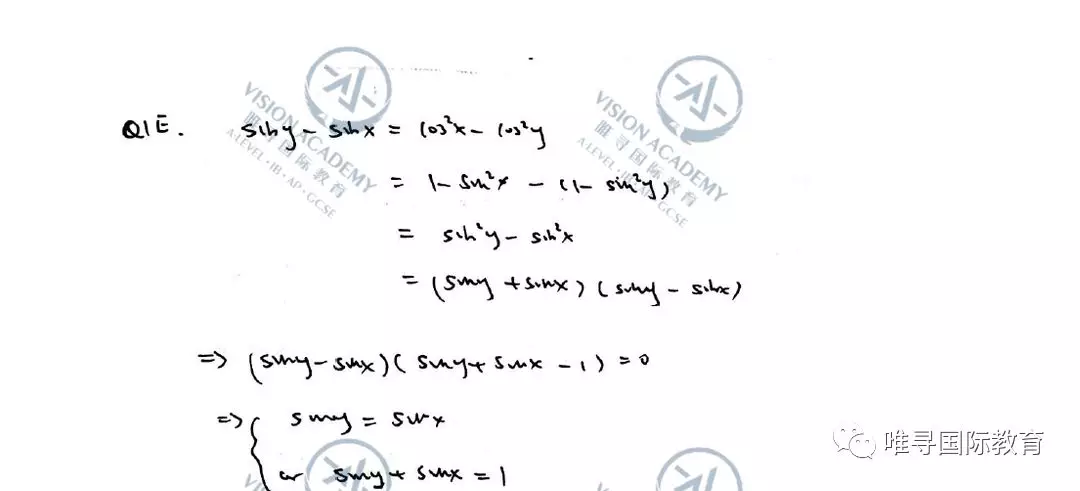 Q1E. siny - sinx = cos²x - cos²y
= 1 - sin²x - (1 - sin²y)
= sin²y - sin²x
= (siny + sinx)(siny - sinx)
=> (siny - sinx)(siny + sinx - 1) = 0
=> { siny = sinx
or siny + sinx = 1
VISION ACADEMY
唯寻国际教育
A-LEVEL·IB·AP·GCSE
VISION ACADEMY
唯寻国际教育
A-LEVEL·IB·AP·GCSE
唯寻国际教育